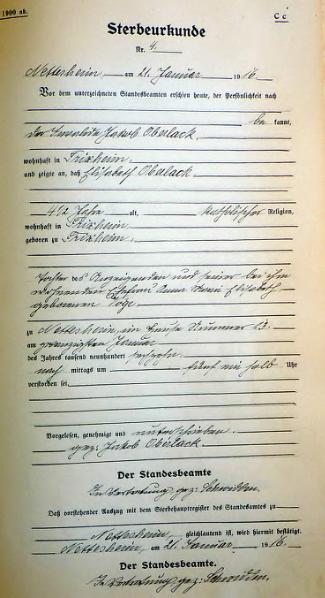 1900 ab.
C c
Sterbeurkunde
Nr. 4.
Nettersheim, am 21. Januar 1916.
Vor dem unterzeichneten Standesbeamten erschien heute, der Persönlichkeit nach
be kannt,
der Invalide Jakob Oberlack,
wohnhaft in Frixheim
und zeigte an, daß Elisabeth Oberlack
4 1/2 Jahre alt, katholischer Religion,
wohnhaft in Frixheim
geboren zu Frixheim,
Tochter des Anzeigenden und seiner bei ihm
wohnenden Ehefrau Anna Maria Elisabeth
geborenen
zu Nettersheim im Hause Nummer 63.
am zwanzigsten Januar
des Jahres tausend neunhundert sechzehn
nach mittags um fünf ein halb Uhr
verstorben sei.
Vorgelesen, genehmigt und unterschrieben
gez. Jakob Oberlack.
Der Standesbeamte
In Vertretung gez.
Daß vorstehender Auszug mit dem Sterbehauptregister des Standesamtes zu
Nettersheim gleichlautend ist, wird hiermit bestätigt.
Nettersheim, am 21. Januar 1916.
Der Standesbeamte.
In Vertretung gez.